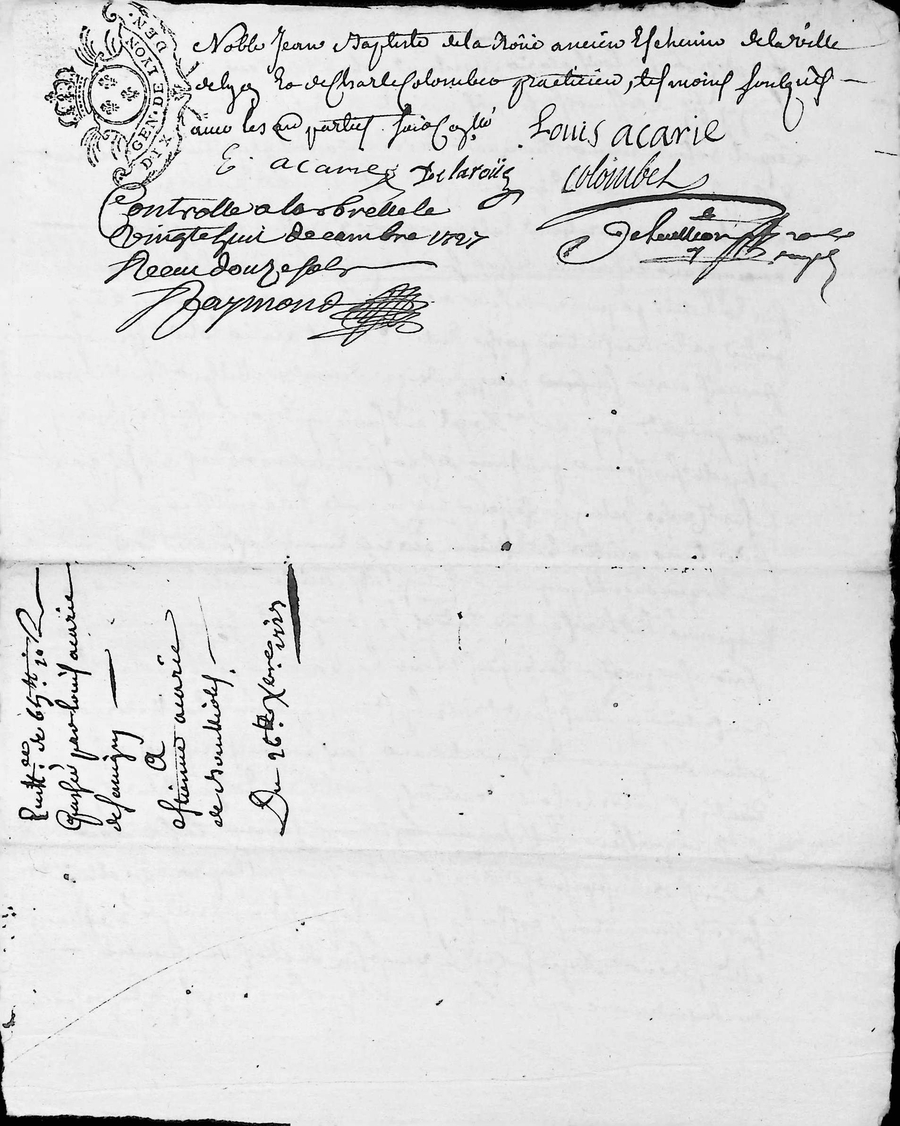 GEN. DE LYON DIX DEN.
Noble Jean Baptiste de la Roüe ancien Eschevin de la ville
de Lyon Et de Charle Colombet praticien, tesmoins soubznés
avec les parties
Louis acarie
E acarie Delaroüe Colombet
Controlle a la bresle le
vingt huit decembre 1727
Receu douze sols
Raymond
Quitt. de 65
passée par Louis acarie
de Savigny
A
estienne acarie
de
Du 26 Xbre 1727